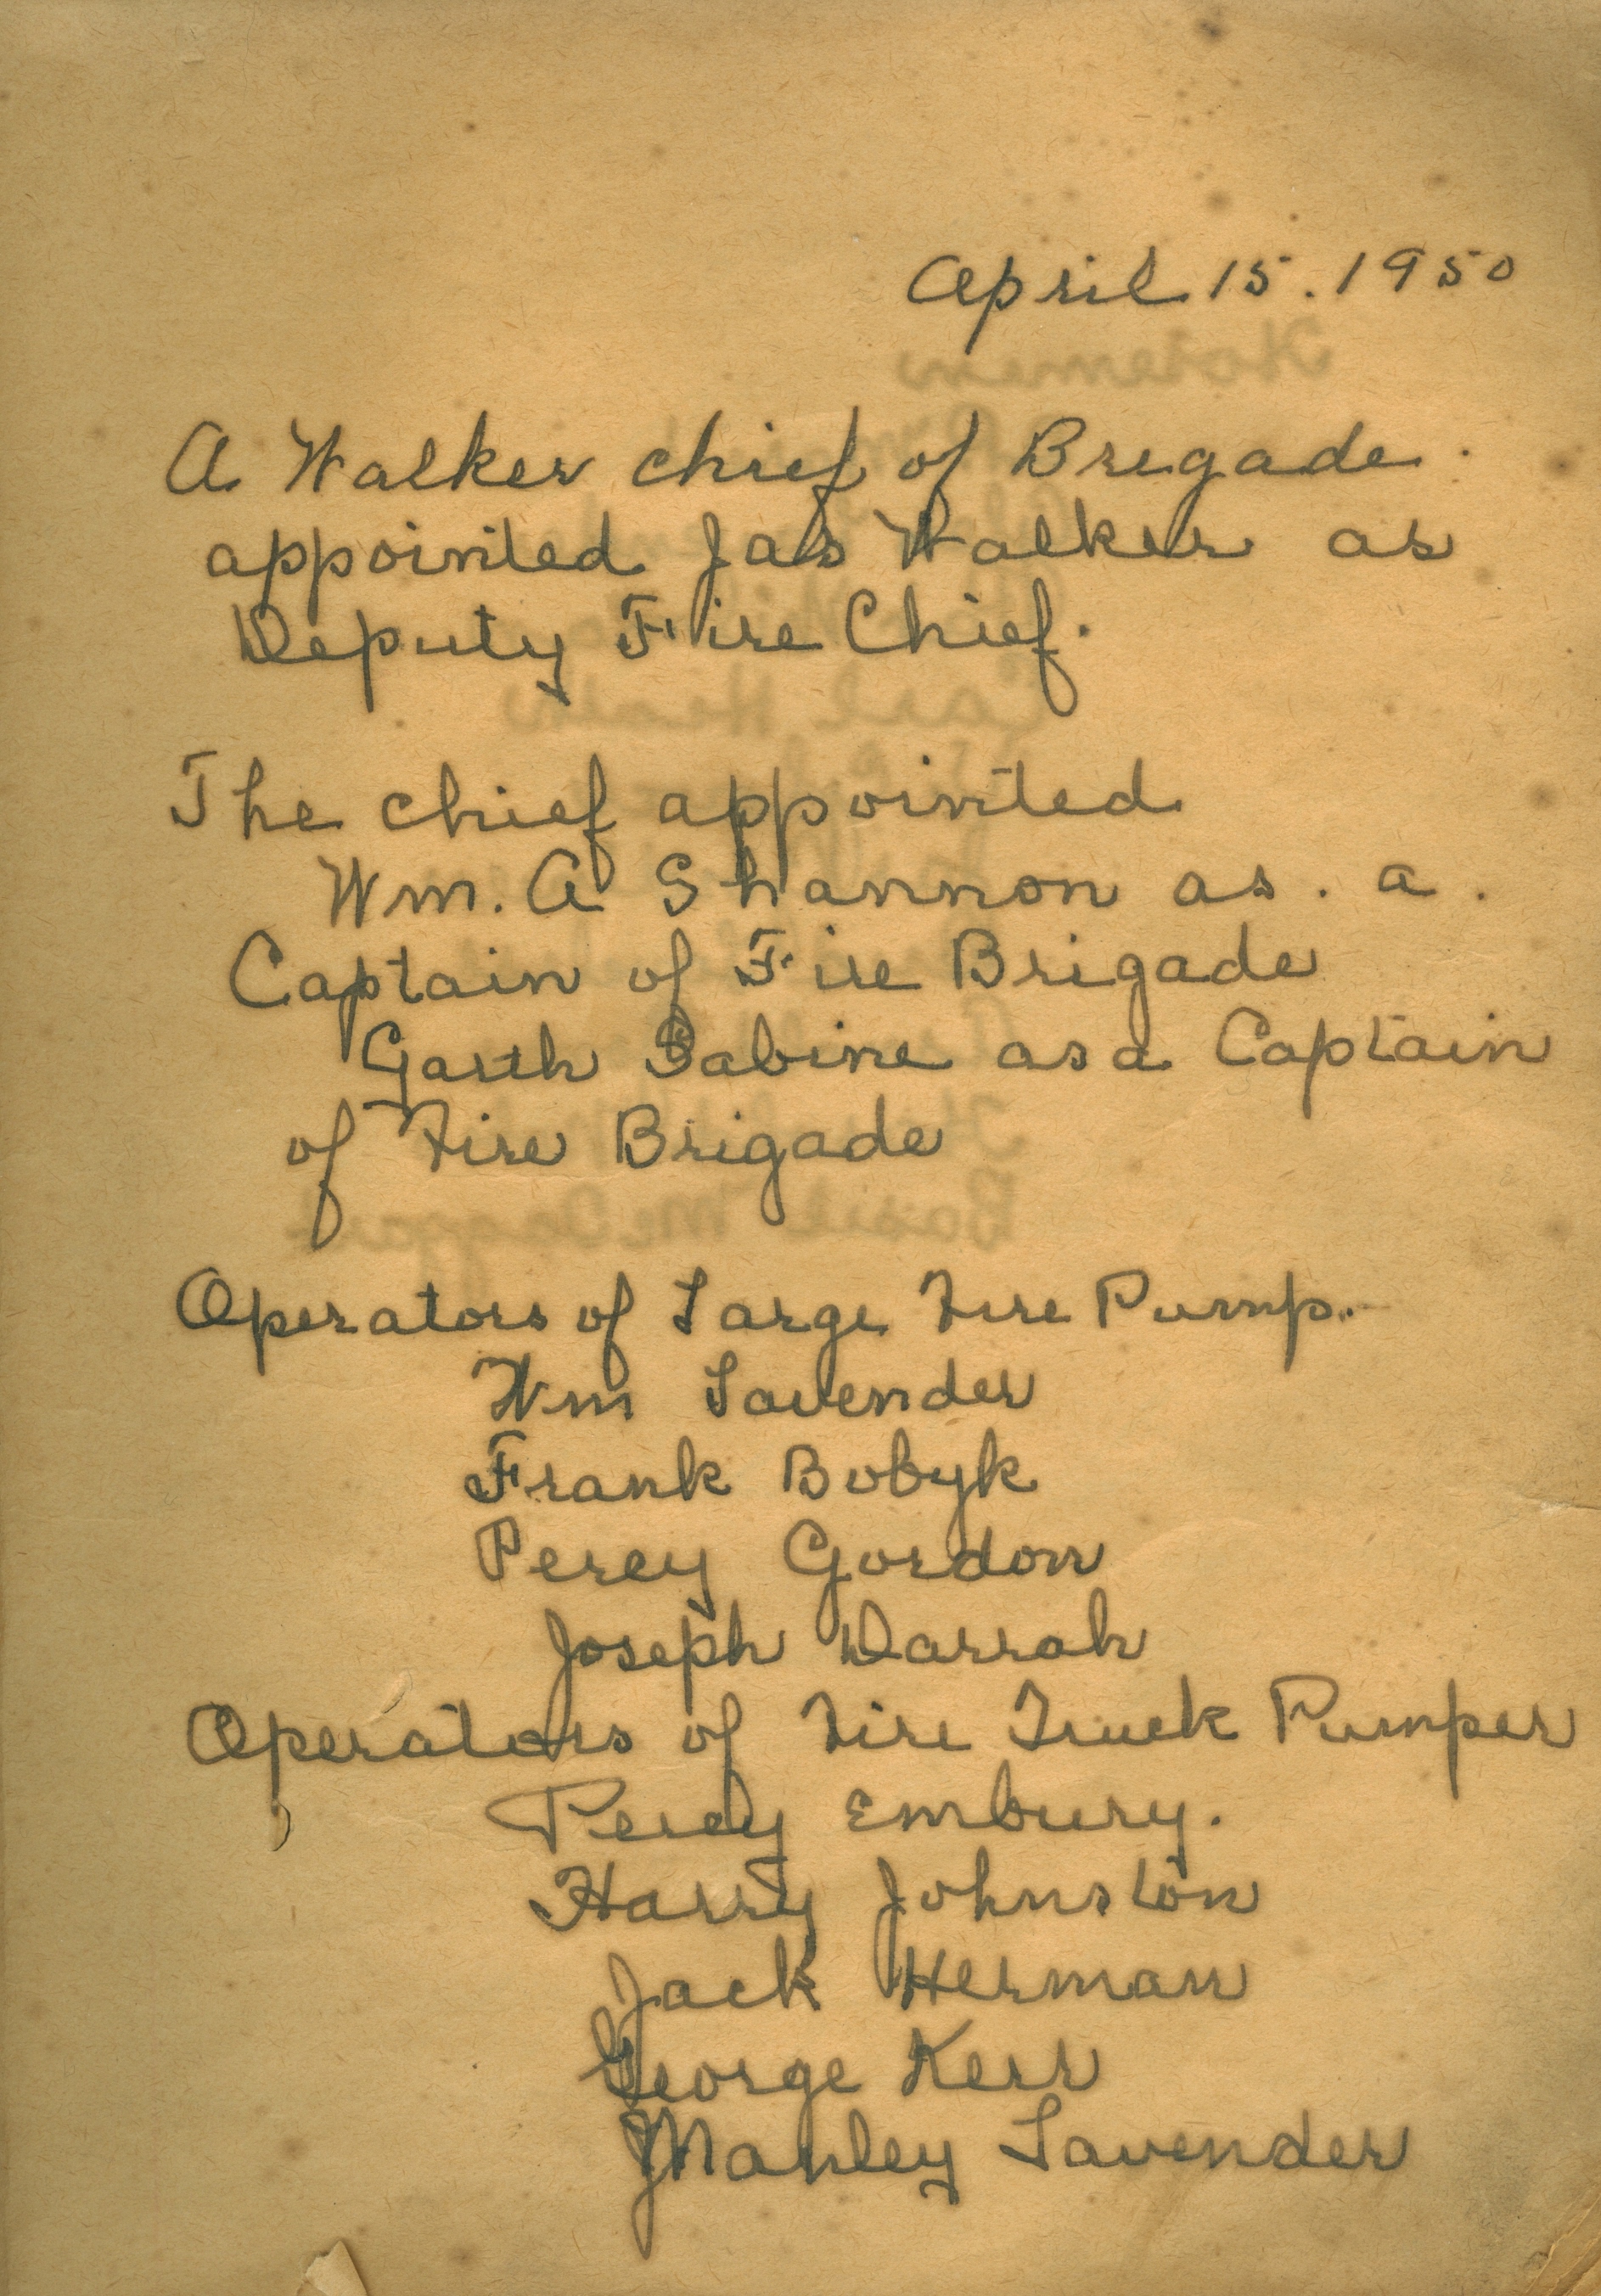 April 15. 1950
A Walker chief of Bregade.
appointed Jas Walker as
Deputy Fire Chief.
The chief appointed
Wm. A Shannon as. a.
Captain of Fire Brigade
Garth Sabine as a Captain
of Fire Brigade
Operators of Large Fire Pump.
Wm Lavender
Frank Bobyk
Percy Gordon
Joseph Darrah
Operators of Fire Truck Pumper
Percy Embury.
Harry Johnston
Jack Herman
George Kerr
Manley Lavender